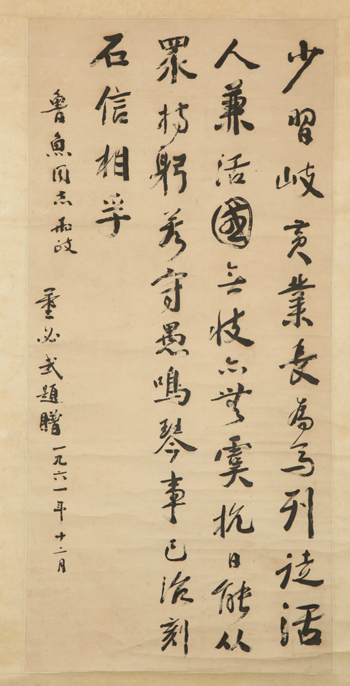 少習岐黄業長為馬列徒活
人兼活國無伎亦無虞抗日能从
眾持躬若守愚鳴琴事已洽刻
石信相孚
魯魚同志雨政
董必武題贈 一九六一年十二月